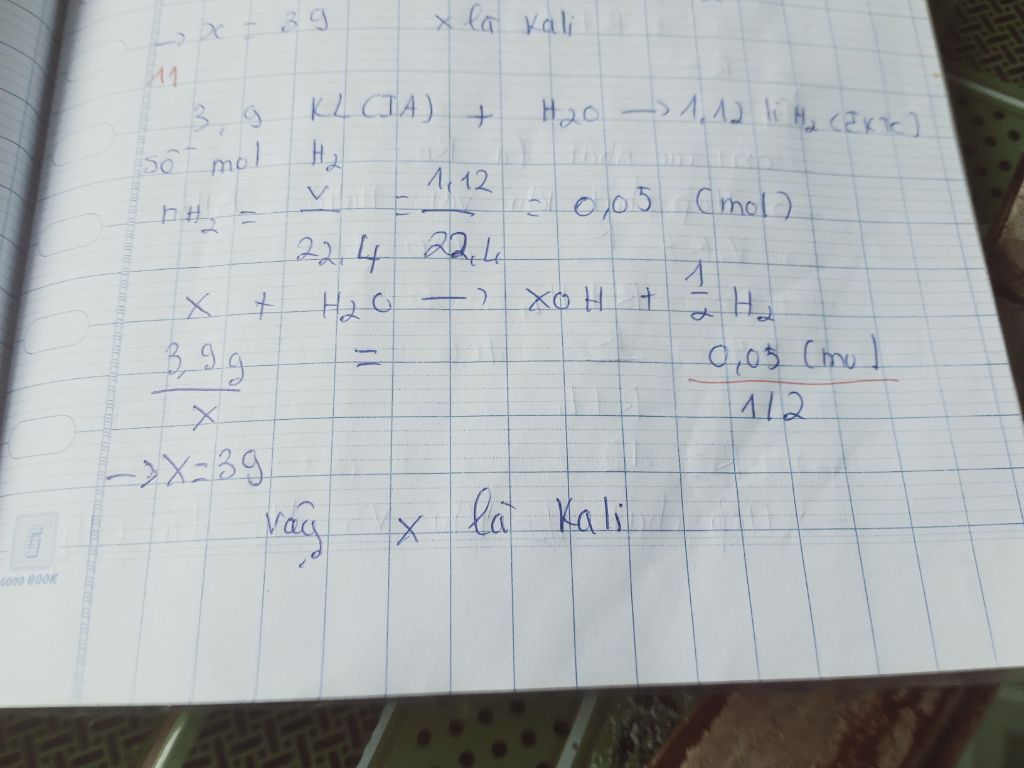 → x = 39 x là Kali
11
3,9 KL (IA) + H2O → 1,12 lí H2 (đktc)
Số mol H2
nH2 = V/22,4 = 1,12/22,4 = 0,05 (mol)
X + H2O → XOH + 1/2 H2
3,9g/X = 0,05 (mol)/1/2
→ X = 39
Vậy X là Kali
GOOD BOOK